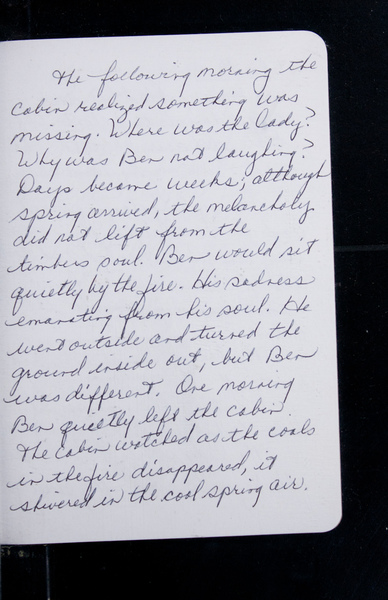 The following morning the
cabin realized something was
missing. Where was the lady?
Why was Ben not laughing?
Days became weeks; although
spring arrived, the melancholy
did not lift from the
timbers soul. Ben would sit
quietly by the fire. His sadness
emanating from his soul. He
went outside and turned the
ground inside out, but Ben
was different. One morning
Ben quietly left the cabin.
The cabin watched as the coals
in the fire disappeared, it
shivered in the cool spring air.